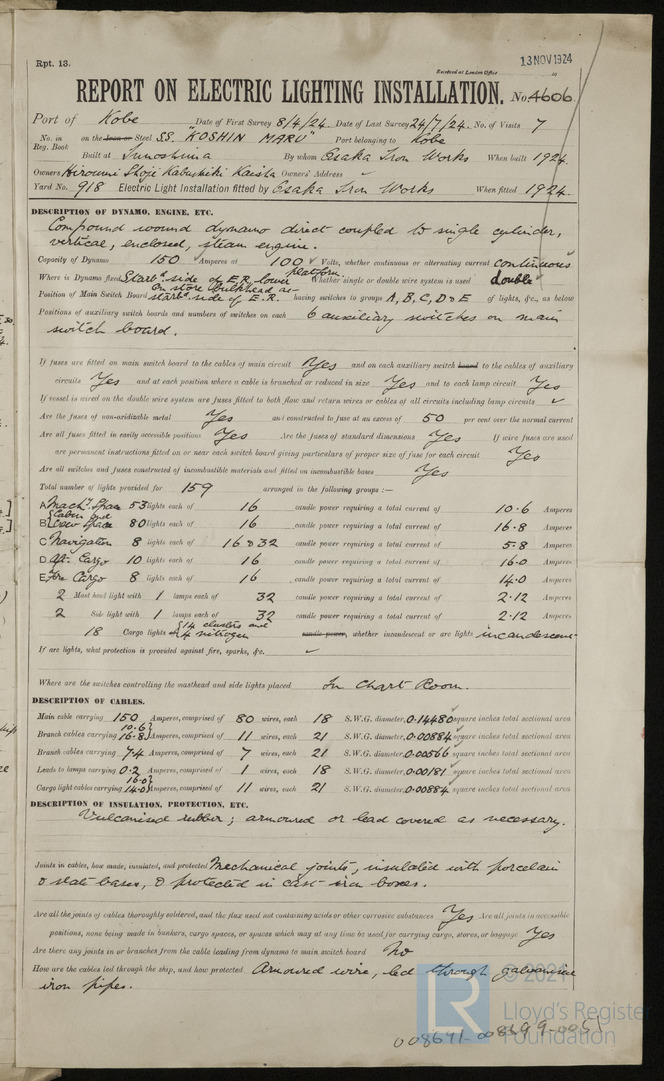 Rpt. 13.
13 NOV 1924
Received at London Office
REPORT ON ELECTRIC LIGHTING INSTALLATION. No. 4606
Port of Kobe Date of First Survey 8/4/24. Date of Last Survey 24/7/24. No. of Visits 7
No. in Reg. Book on the Iron or Steel S.S. "KOSHIN MARU" Port belonging to Kobe
Built at By whom Osaka Iron Works When built 1924.
Owners Hiroumi Shoji Kabushiki Kaisha Owners' Address ✓
Yard No. 918 Electric Light Installation fitted by Osaka Iron Works When fitted 1924.
DESCRIPTION OF DYNAMO, ENGINE, ETC.
Compound wound dynamo direct coupled to single cylinder,
vertical, enclosed, steam engine.
Capacity of Dynamo 150 Amperes at 100 Volts, whether continuous or alternating current continuous
Where is Dynamo fixed Starbd. side of E.R. lower platform. Whether single or double wire system is used double
Position of Main Switch Board on store bulkhead at starbd. side of E.R. having switches to groups A, B, C, D & E of lights, &c., as below
Positions of auxiliary switch boards and numbers of switches on each 6 auxiliary switches on main
switch board.
If fuses are fitted on main switch board to the cables of main circuit Yes and on each auxiliary switch board to the cables of auxiliary
circuits Yes and at each position where a cable is branched or reduced in size Yes and to each lamp circuit Yes
If vessel is wired on the double wire system are fuses fitted to both flow and return wires or cables of all circuits including lamp circuits ✓
Are the fuses of non-oxidizable metal Yes and constructed to fuse at an excess of 50 per cent over the normal current
Are all fuses fitted in easily accessible positions Yes Are the fuses of standard dimensions Yes If wire fuses are used
are permanent instructions fitted on or near each switch board giving particulars of proper size of fuse for each circuit Yes
Are all switches and fuses constructed of incombustible materials and fitted on incombustible bases Yes
Total number of lights provided for 159 arranged in the following groups :—
A Machy. Space 53 lights each of 16 candle power requiring a total current of 10.6 Amperes
B Cabin and Crew Space 80 lights each of 16 candle power requiring a total current of 16.8 Amperes
C Navigation 8 lights each of 16 & 32 candle power requiring a total current of 5.8 Amperes
D Aft. Cargo 10 lights each of 16 candle power requiring a total current of 16.0 Amperes
E Fore Cargo 8 lights each of 16 candle power requiring a total current of 14.0 Amperes
2 Mast head light with 1 lamps each of 32 candle power requiring a total current of 2.12 Amperes
2 Side light with 1 lamps each of 32 candle power requiring a total current of 2.12 Amperes
18 Cargo lights of 14 clusters and 4 nitrogen candle power, whether incandescent or arc lights incandescent
If arc lights, what protection is provided against fire, sparks, &c. ✓
Where are the switches controlling the masthead and side lights placed In Chart Room.
DESCRIPTION OF CABLES.
Main cable carrying 150 Amperes, comprised of 80 wires, each 18 S.W.G. diameter, 0.14480 square inches total sectional area
Branch cables carrying 10.6 16.8 Amperes, comprised of 11 wires, each 21 S.W.G. diameter, 0.00884 square inches total sectional area
Branch cables carrying 7.4 Amperes, comprised of 7 wires, each 21 S.W.G. diameter, 0.00566 square inches total sectional area
Leads to lamps carrying 0.2 Amperes, comprised of 1 wires, each 18 S.W.G. diameter, 0.00181 square inches total sectional area
Cargo light cables carrying 16.0 14.0 Amperes, comprised of 11 wires, each 21 S.W.G. diameter, 0.00884 square inches total sectional area
DESCRIPTION OF INSULATION, PROTECTION, ETC.
Vulcanised rubber; armoured or lead covered as necessary.
Joints in cables, how made, insulated, and protected Mechanical joints, insulated with porcelain
& slate bases, & protected in cast iron boxes.
Are all the joints of cables thoroughly soldered, and the flux used not containing acids or other corrosive substances Yes Are all joints in accessible
positions, none being made in bunkers, cargo spaces, or spaces which may at any time be used for carrying cargo, stores, or baggage Yes
Are there any joints in or branches from the cable leading from dynamo to main switch board No
How are the cables led through the ship, and how protected Armoured wire, led through galvanised
iron pipes.
© 2021
LR Lloyd's Register Foundation
008691-008699-0051